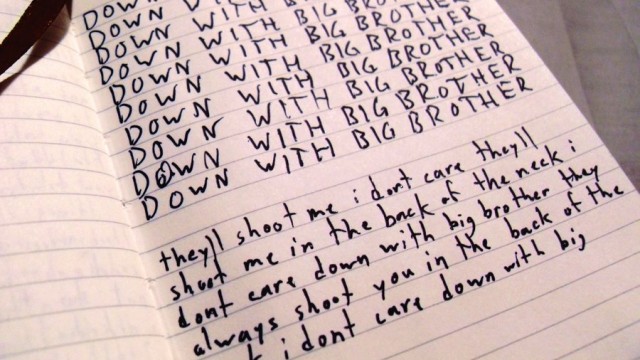 DOWN
DOWN WITH BIG BROTHER
DOWN WITH BIG BROTHER
DOWN WITH BIG BROTHER
DOWN WITH BIG BROTHER
DOWN WITH BIG BROTHER
DOWN WITH BIG BROTHER
DOWN WITH BIG BROTHER
they'll shoot me i dont care they'll
shoot me in the back of the neck i
dont care down with big brother they
always shoot you in the back of the
i dont care down with big